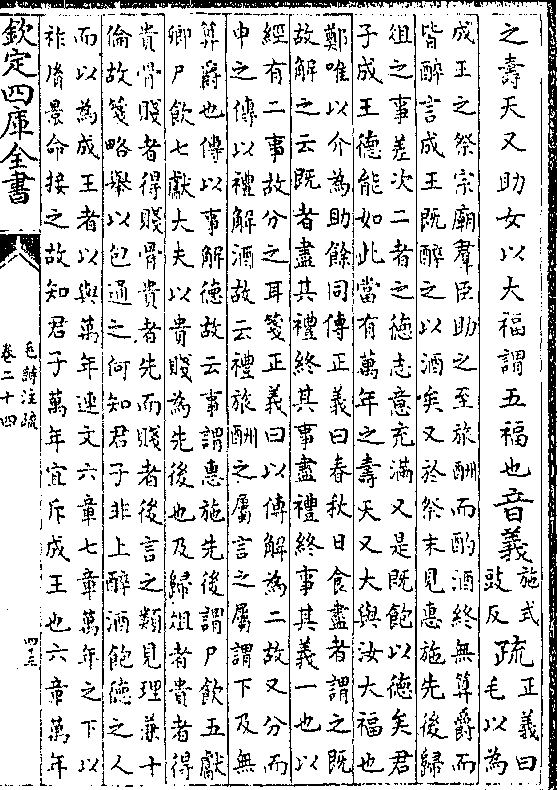 之壽天又助女以大福謂五福也音義施式豉反疏正義曰毛以為
成王之祭宗廟羣臣助之至旅酬而酌酒終無算爵而
皆醉言成王既醉之以酒矣又於祭末見惠施先後歸
俎之事差次二者之徳志意充滿又是既飽以德矣君
子成王德能如此當有萬年之壽天又大與汝大福也
鄭唯以介為助餘同傳正義曰春秋日食盡者謂之既
故解之云既者盡其禮終其事盡禮終事其義一也以
經有二事故分之耳箋正義曰以傳解為二故又分而
申之傳以禮解酒故云禮旅酬之屬言之屬謂下及無
算爵也傳以事解德故云事謂惠施先後謂尸飲五獻
卿尸飲七獻大夫以貴賤為先後也及歸俎者貴者得
貴骨賤者得賤骨貴者先而賤者後言之類見理兼十
倫故箋略舉以包通之何知君子非上醉酒飽德之人
而以為成王者以與萬年連文六章七章萬年之下以
祚胤景命接之故知君子萬年宜斥成王也六章萬年
欽定四庫全書
毛詩注疏
卷二十四
四三